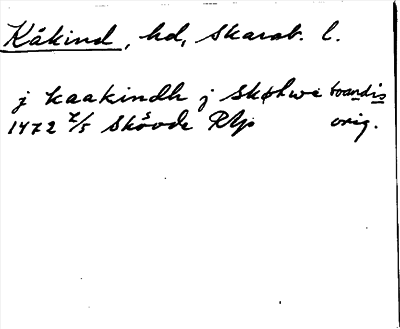 Kåkind, hd, Skarab. l.
j kaakindh j skøhwe boandis
1472 7/5 Skövde RAp orig.